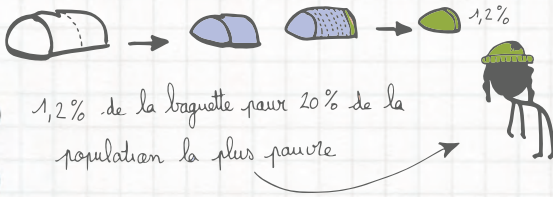 1,2%
1,2% de la baguette pour 20% de la
population la plus pauvre